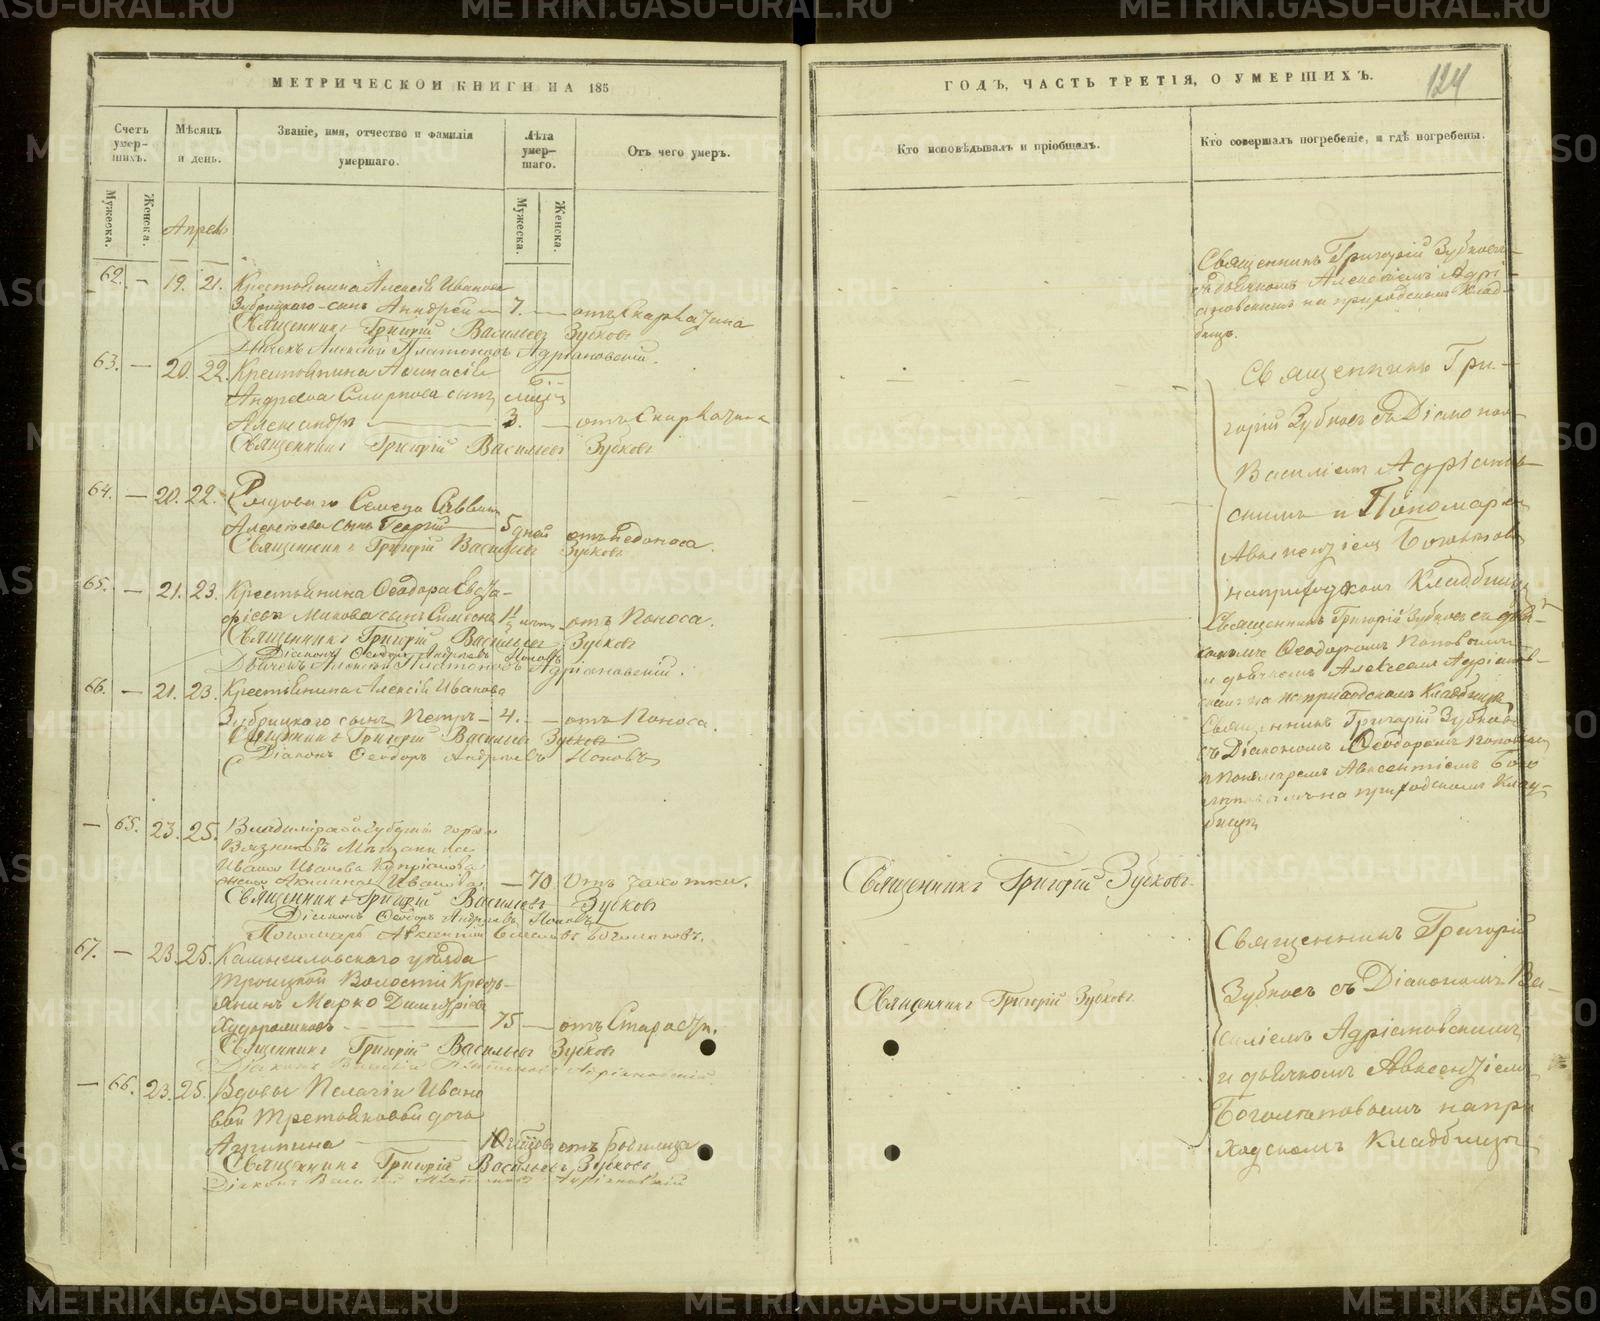 МЕТРИЧЕСКОЙ КНИГИ НА 185
Счетъ умер-шихъ.
Мѣсяцъ и день.
Званіе, имя, отчество и фамилія умершаго.
Лѣта умер-шаго.
Отъ чего умеръ.
Мужеска.
Женска.
Мужеска.
Женска.
Апрель
62. — 19. 21. Крестьянина Алексія Иванова
Зубрицкаго сынъ Андрей — 7. — отъ Скарлатина
Священникъ Григорій Васильевъ Зубковъ
Дьячекъ Алексѣй Платоновъ Адріановскій.
63. — 20. 22. Крестьянина Аѳанасія 6.
Андреева Смирнова сынъ
Александръ — 3. — отъ Скарлатина
Священникъ Григорій Васильевъ Зубковъ
64. — 20. 22. Рядоваго Семена Саввина
Алексѣева сынъ Георгій — 5 дней отъ Родимца.
Священникъ Григорій Васильевъ Зубковъ
65. — 21. 23. Крестьянина Ѳеодора
сынъ Симеонъ отъ Поноса.
Священникъ Григорій Васильевъ Зубковъ
Діаконъ Ѳеодоръ Андреевъ Поповъ
Дьячекъ Алексѣй Платоновъ Адріановскій.
66. — 21. 23. Крестьянина Алексія Иванова
Зубрицкаго сынъ Петръ — 4. — отъ Поноса
Священникъ Григорій Васильевъ Зубковъ
Діаконъ Ѳеодоръ Андреевъ Поповъ
— 65. 23. 25. Владимірской губерніи города
Вязниковъ Мѣщанина
Ивана Иванова Купріанова
жена Акилина Иванова — 70 Отъ чахотки.
Священникъ Григорій Васильевъ Зубковъ
Діаконъ Ѳеодоръ Андреевъ Поповъ
Пономарь Авксентій Боголеповъ.
67. — 23. 25. Камышловскаго уѣзда
Троицкой Волости Кресть-
янинъ Марко Димитріевъ
— 75 — отъ Старости.
Священникъ Григорій Васильевъ Зубковъ
Діаконъ Василій Платоновъ Адріановскій
— 66. 23. 25. Вдовы Пелагіи Ивано
вой Третьяковой дочь
Агрипина — отъ
Священникъ Григорій Васильевъ Зубковъ
Діаконъ Василій Платоновъ Адріановскій
ГОДЪ, ЧАСТЬ ТРЕТІЯ, О УМЕРШИХЪ.
124
Кто исповѣдывалъ и пріобщалъ.
Кто совершалъ погребеніе, и гдѣ погребены.
Священникъ Григорій Зубковъ
съ дьячкомъ Алексіемъ Адрі-
ановскимъ на приходскомъ Клад-
бищѣ.
Священникъ Гри-
горій Зубковъ съ Діакономъ
Василіемъ Адріанов-
скимъ и Пономаремъ
Авксентіемъ Боголеповымъ
на приходскомъ Кладбищѣ
Священникъ Григорій Зубковъ съ діа-
кономъ Ѳеодоромъ Поповымъ
и дьячкомъ Алексѣемъ Адріанов-
скимъ на приходскомъ Кладбищѣ
Священникъ Григорій Зубковъ
съ Діакономъ Ѳеодоромъ Поповымъ
и Пономаремъ Авксентіемъ Бого
леповымъ на приходскомъ Клад-
бищѣ
Священникъ Григорій Зубковъ
Священникъ Григорій Зубковъ
Священникъ Григорій
Зубковъ съ Діакономъ Ва-
силіемъ Адріановскимъ
и дьячкомъ Авксентіемъ
Боголеповымъ на при
ходскомъ Кладбищѣ
METRIKI.GASO-URAL.RU